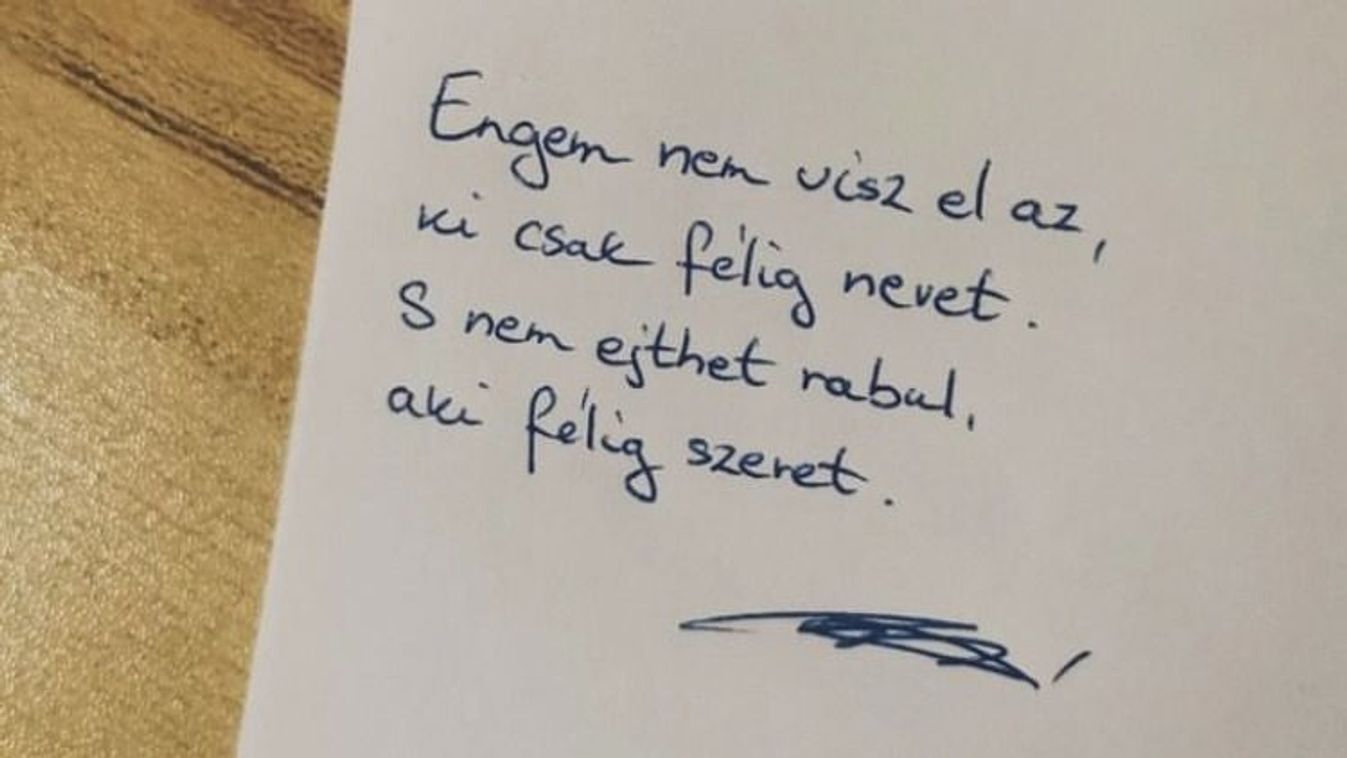 Engem nem visz el az,
ki csak félig nevet.
S nem ejthet rabul,
aki félig szeret.